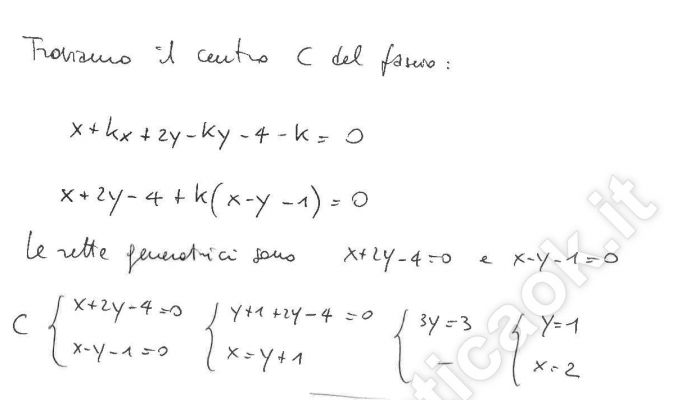 Troviamo il centro C del fascio:
x+kx+2y-ky-4-k=0
x+2y-4+k(x-y-1)=0
Le rette generatrici sono x+2y-4=0 e x-y-1=0
C { x+2y-4=0 { y+1+2y-4=0 { 3y=3 { y=1
x-y-1=0 x=y+1 — x=2
ticaok.it